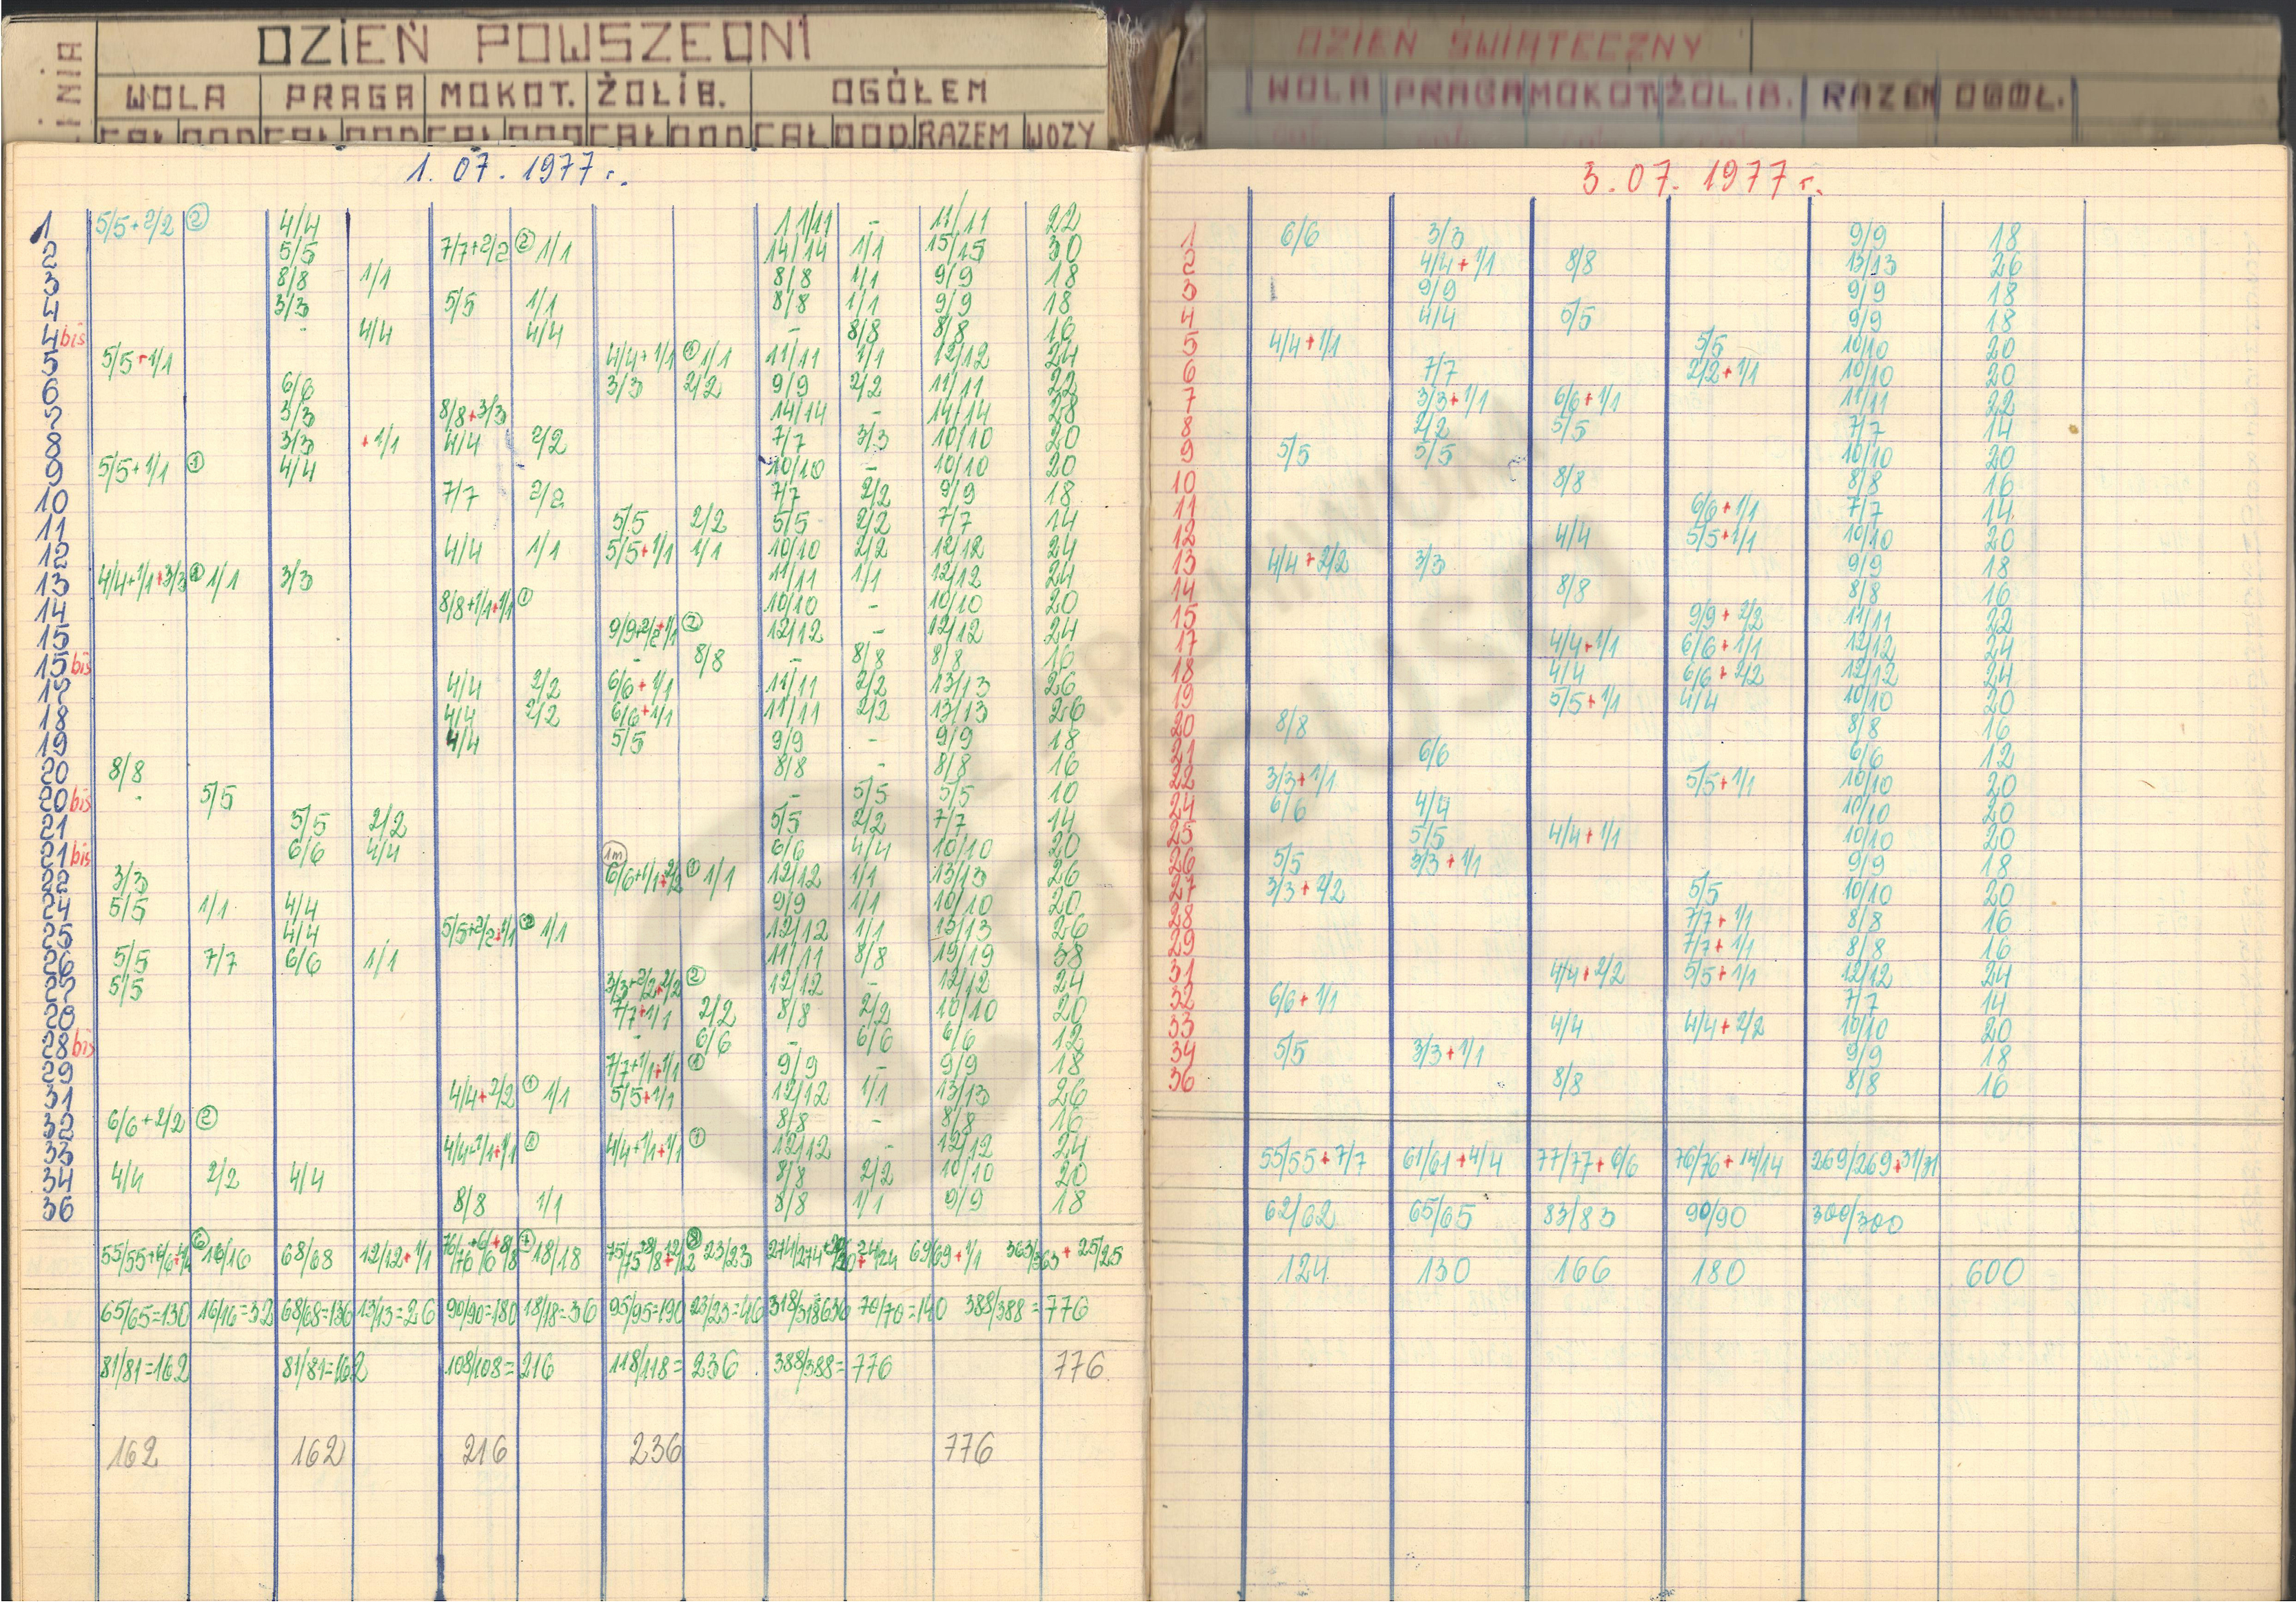 LINIA
DZIEŃ POWSZEDNI
WOLA PRAGA MOKOT. ŻOLIB. OGÓŁEM
CAŁ DOD CAŁ DOD CAŁ DOD CAŁ DOD CAŁ DOD. RAZEM WOZY
1. 07. 1977 r.
1 5/5+2/2 ② 4/4 11/11 - 11/11 22
2 5/5 7/7+2/2 ② 1/1 14/14 1/1 15/15 30
3 8/8 1/1 8/8 1/1 9/9 18
4 3/3 5/5 1/1 8/8 1/1 9/9 18
4 bis - 4/4 4/4 - 8/8 8/8 16
5 5/5+1/1 4/4+1/1 ① 1/1 11/11 1/1 12/12 24
6 6/6 3/3 2/2 9/9 2/2 11/11 22
7 3/3 8/8+3/3 14/14 - 14/14 28
8 3/3 +1/1 4/4 2/2 7/7 3/3 10/10 20
9 5/5+1/1 ① 4/4 10/10 - 10/10 20
10 7/7 2/2 7/7 2/2 9/9 18
11 5/5 2/2 5/5 2/2 7/7 14
12 4/4 1/1 5/5+1/1 1/1 10/10 2/2 12/12 24
13 4/4+1/1+3/3 ① 1/1 3/3 11/11 1/1 12/12 24
14 8/8+1/1+1/1 ① 10/10 - 10/10 20
15 9/9+2/2+1/1 ② 12/12 - 12/12 24
15 bis - 8/8 - 8/8 8/8 16
17 4/4 2/2 6/6+1/1 11/11 2/2 13/13 26
18 4/4 2/2 6/6+1/1 11/11 2/2 13/13 26
19 4/4 5/5 9/9 - 9/9 18
20 8/8 8/8 - 8/8 16
20 bis - 5/5 - 5/5 5/5 10
21 5/5 2/2 5/5 2/2 7/7 14
21 bis 6/6 4/4 6/6 4/4 10/10 20
22 3/3 1m 6/6+1/1+2/2 ① 1/1 12/12 1/1 13/13 26
24 5/5 1/1 4/4 9/9 1/1 10/10 20
25 4/4 5/5+2/2+1/1 ② 1/1 12/12 1/1 13/13 26
26 5/5 7/7 6/6 1/1 11/11 8/8 19/19 38
27 5/5 3/3+2/2+2/2 ② 12/12 - 12/12 24
28 7/7+1/1 2/2 8/8 2/2 10/10 20
28 bis - 6/6 - 6/6 6/6 12
29 7/7+1/1+1/1 ① 9/9 - 9/9 18
31 4/4+2/2 ① 1/1 5/5+1/1 12/12 1/1 13/13 26
32 6/6+2/2 ② 8/8 - 8/8 16
33 4/4+1/1+1/1 4/4+1/1+1/1 ① 12/12 - 12/12 24
34 4/4 2/2 4/4 8/8 2/2 10/10 20
36 8/8 1/1 8/8 1/1 9/9 18
55/55+6/6+4/4 ⑥ 16/16 68/68 12/12+1/1 76/76+6/6+8/8 ⑦ 18/18 75/75+8/8+12/12 ⑧ 23/23 274/274+20/20+24/24 69/69+1/1 363/363+25/25
65/65=130 16/16=32 68/68=136 13/13=26 90/90=180 18/18=36 95/95=190 23/23=46 318/318 636 70/70=140 388/388=776
81/81=162 81/81=162 108/108=216 118/118=236 388/388=776 776
162 162 216 236 776
DZIEŃ ŚWIĄTECZNY
WOLA PRAGA MOKOT. ŻOLIB. RAZEM OGÓŁ.
3. 07. 1977 r.
1 6/6 3/3 9/9 18
2 4/4+1/1 8/8 13/13 26
3 9/9 9/9 18
4 4/4 5/5 9/9 18
5 4/4+1/1 5/5 10/10 20
6 7/7 2/2+1/1 10/10 20
7 3/3+1/1 6/6+1/1 11/11 22
8 2/2 5/5 7/7 14
9 5/5 5/5 10/10 20
10 8/8 8/8 16
11 6/6+1/1 7/7 14
12 4/4 5/5+1/1 10/10 20
13 4/4+2/2 3/3 9/9 18
14 8/8 8/8 16
15 9/9+2/2 11/11 22
17 4/4+1/1 6/6+1/1 12/12 24
18 4/4 6/6+2/2 12/12 24
19 5/5+1/1 4/4 10/10 20
20 8/8 8/8 16
21 6/6 6/6 12
22 3/3+1/1 5/5+1/1 10/10 20
24 6/6 4/4 10/10 20
25 5/5 4/4+1/1 10/10 20
26 5/5 3/3+1/1 9/9 18
27 3/3+2/2 5/5 10/10 20
28 7/7+1/1 8/8 16
29 7/7+1/1 8/8 16
31 4/4+2/2 5/5+1/1 12/12 24
32 6/6+1/1 7/7 14
33 4/4 4/4+2/2 10/10 20
34 5/5 3/3+1/1 9/9 18
36 8/8 8/8 16
55/55+7/7 61/61+4/4 77/77+6/6 76/76+14/14 269/269+31/31
62/62 65/65 83/83 90/90 300/300
124 130 166 180 600